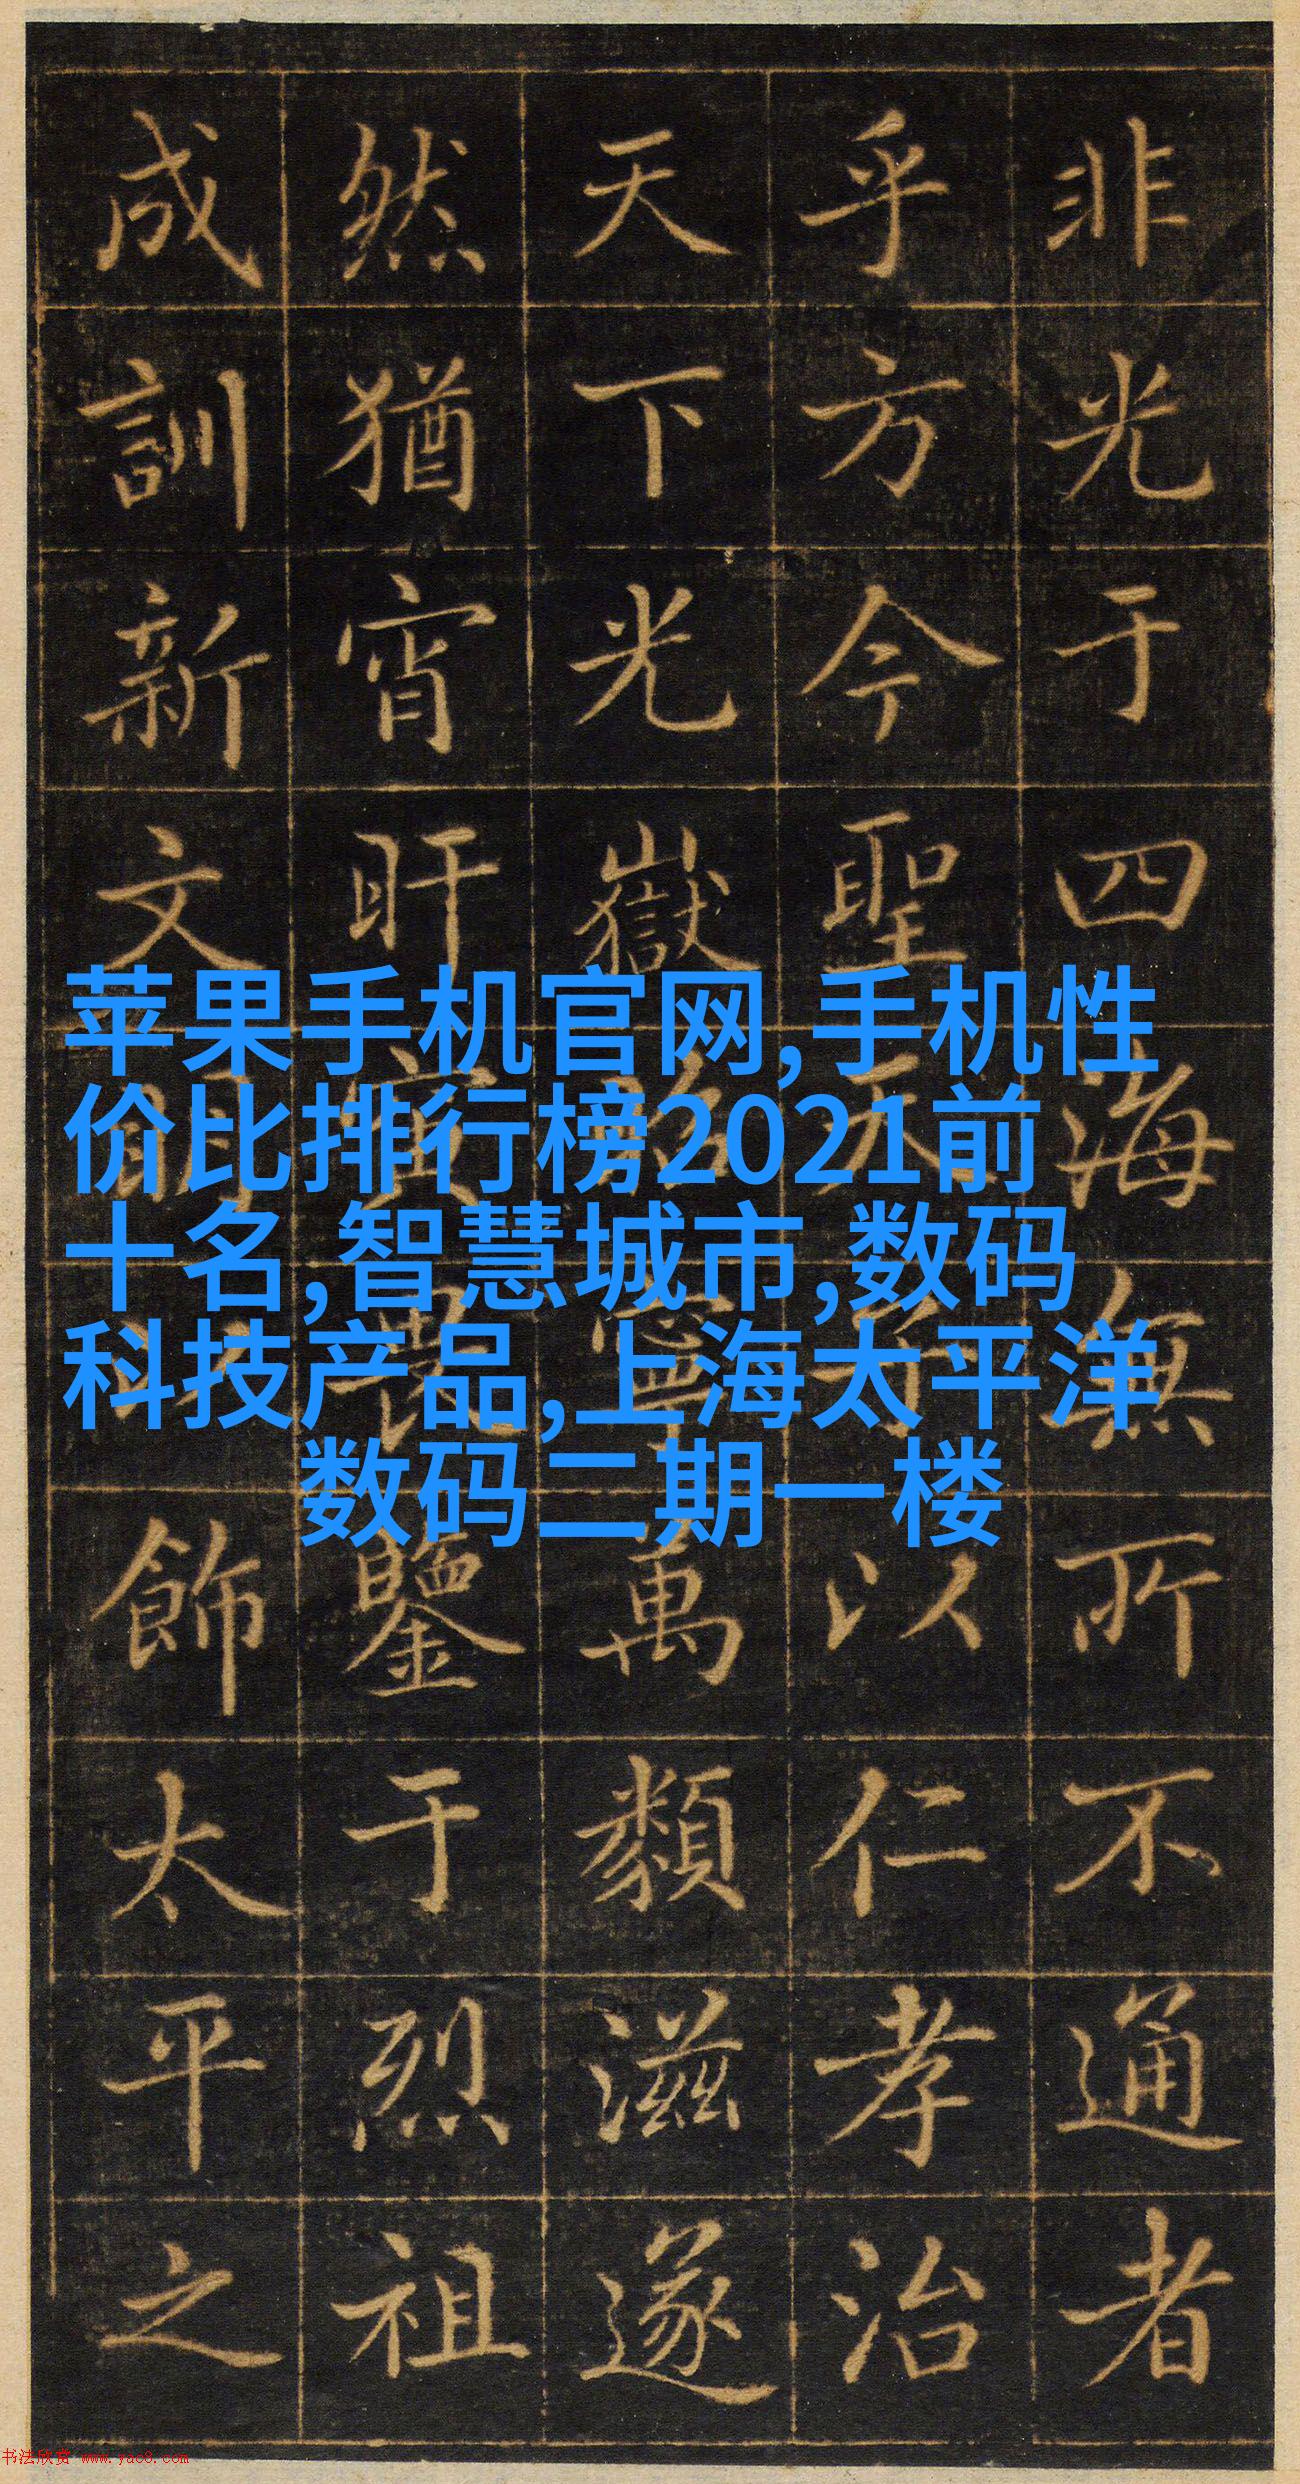 非光于四海無所不通者
乎方今聖天子以仁孝治
天下光嶽寧萬類滋遂
然猶宵旰寅畏鑒于烈祖
成訓新文明以飾太平之
苹果手机官网,手机性
价比排行榜2021前
十名,智慧城市,数码
科技产品,上海太平洋
数码二期一楼
书法欣赏 www.yac8.com